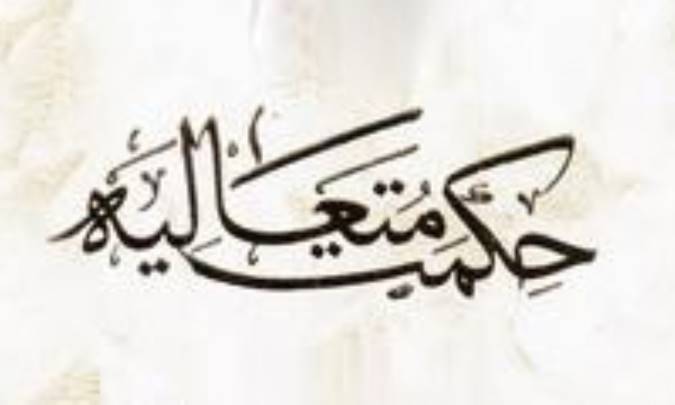 حِکمت مُتعالیه